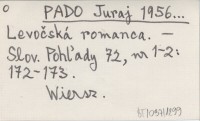 o
PADO Juraj 1956...
Levočská romanca. —
Slov. Pohľady 72, nr 1-2:
172-173.
Wiersz.
BT/057/1999